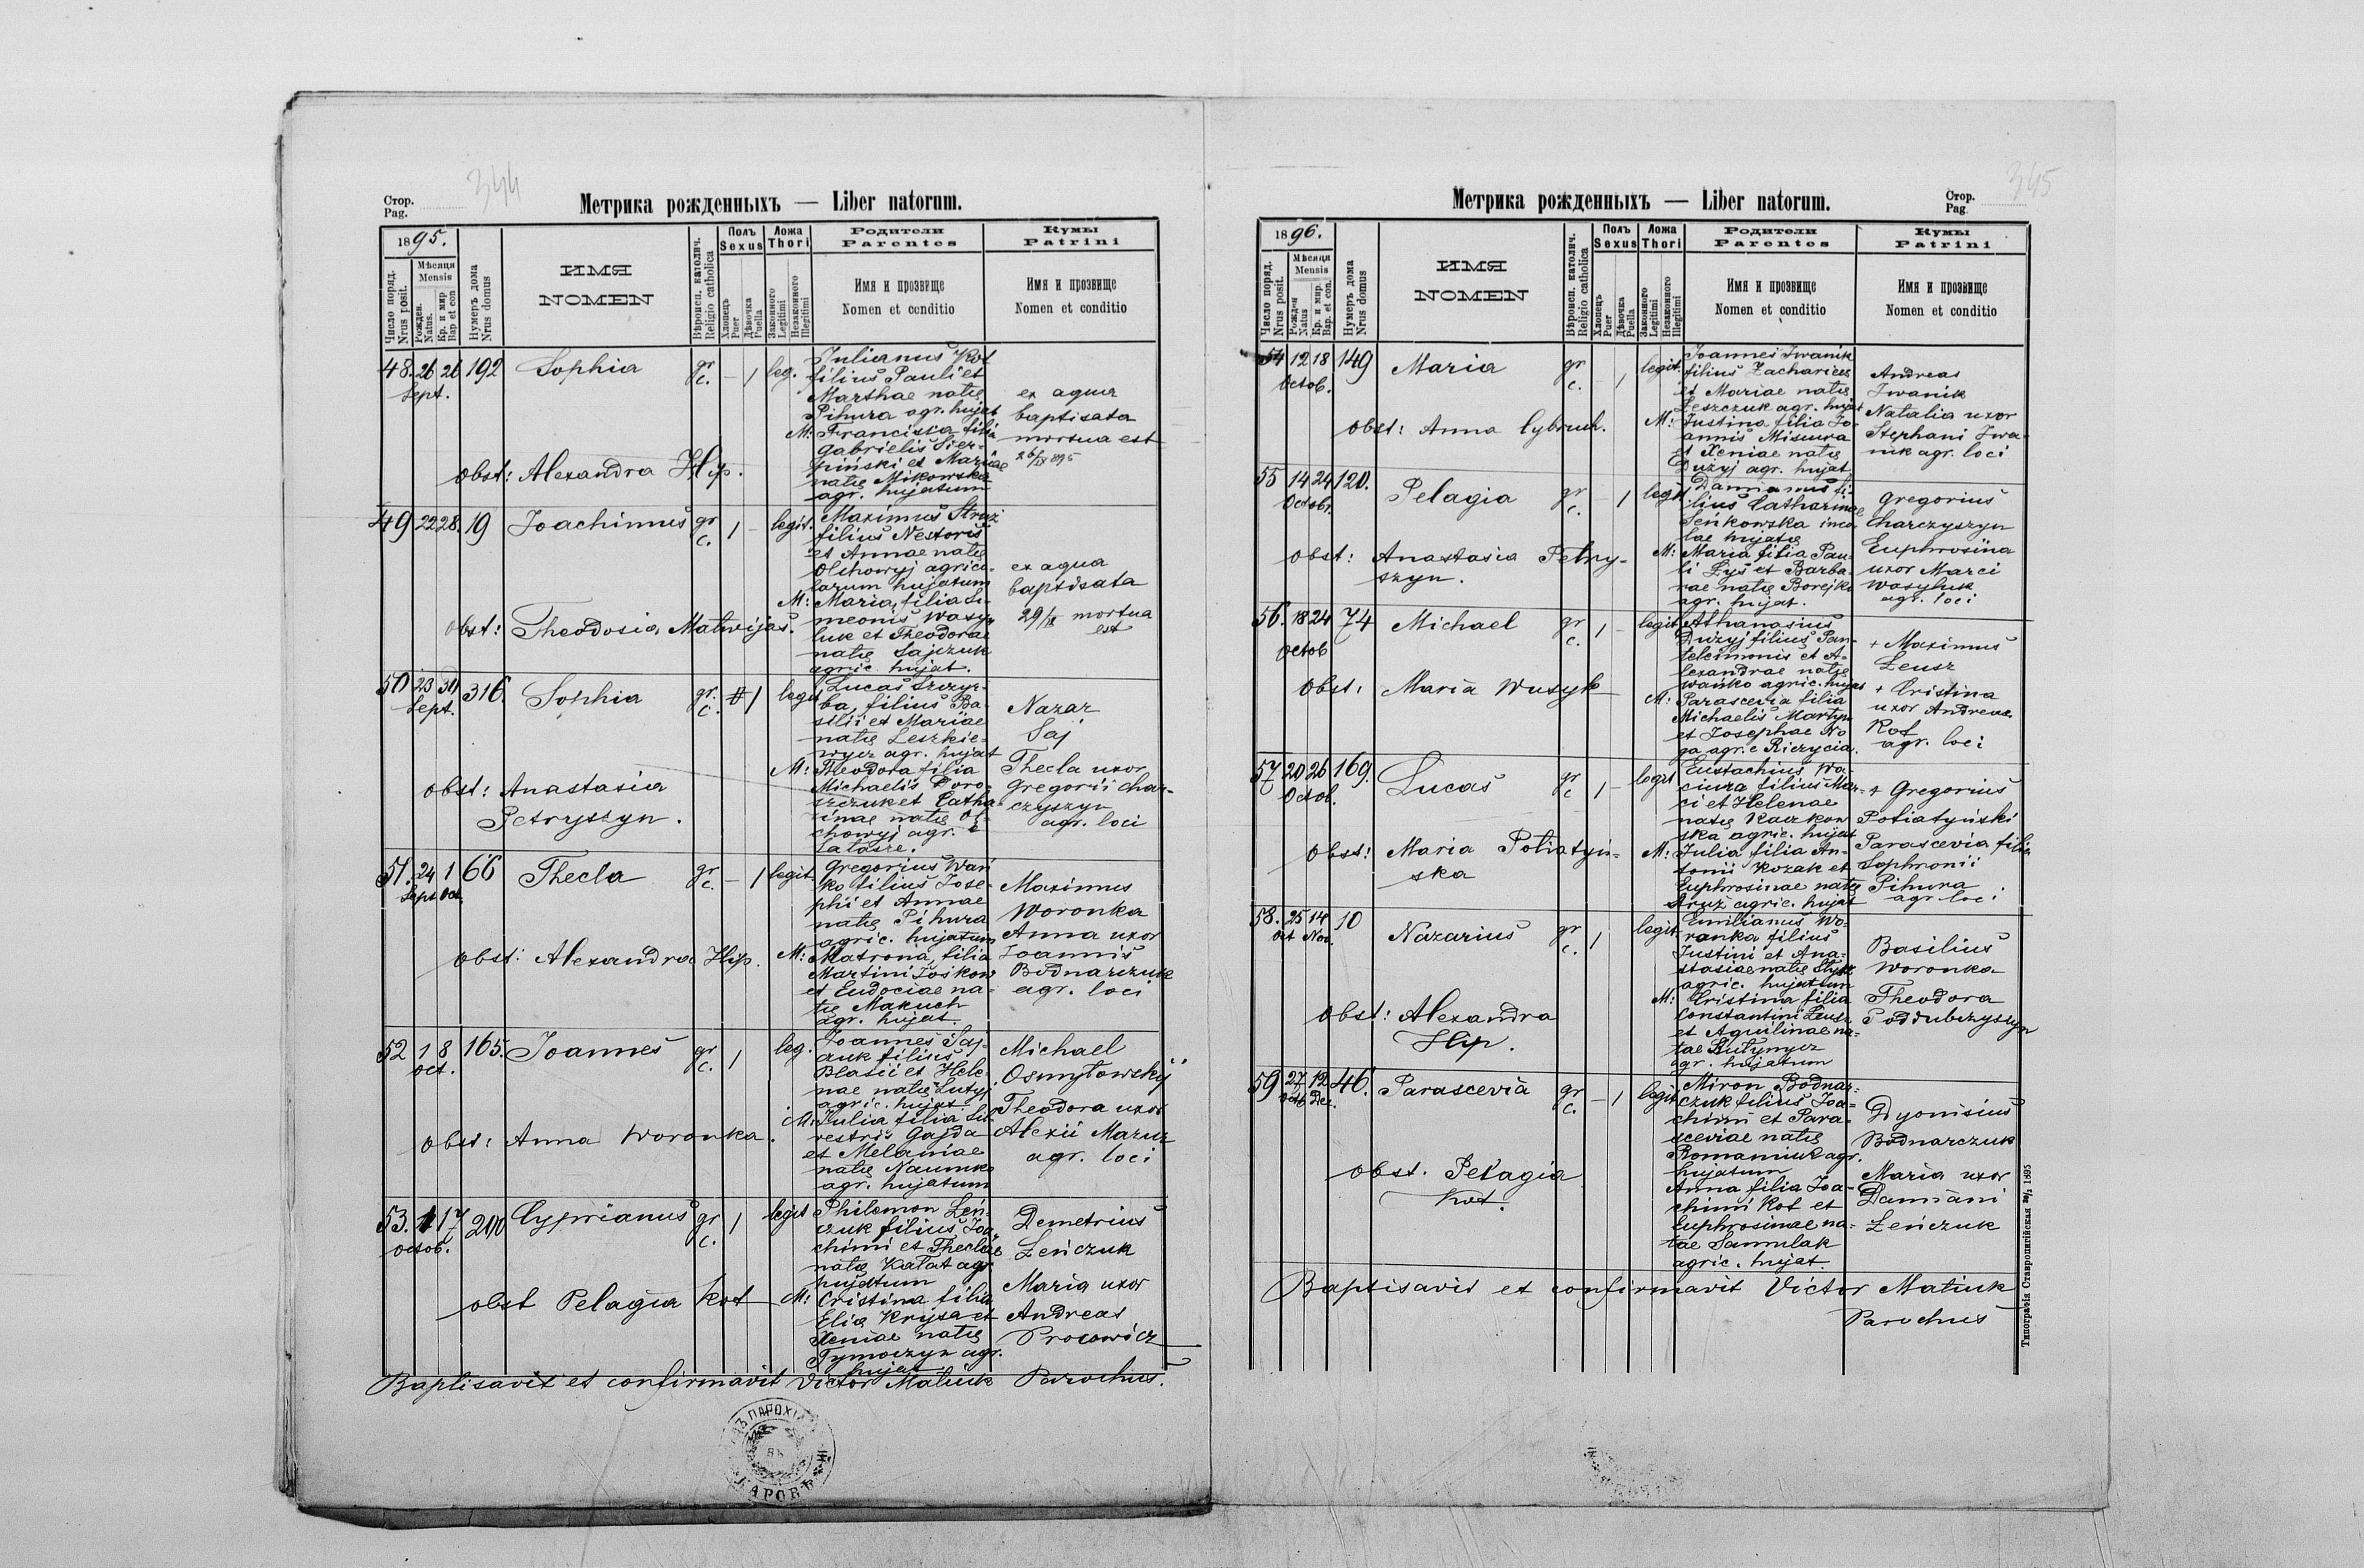 344
Стор.
Pag.
Метрика рожденныхъ — Liber natorum.
1895.
Число поряд.
Nrus posit.
Мѣсяця
Mensis
Рожден.
Natus.
Кр. и мир
Bap et con
Нумеръ дома
Nrus domus
ИМЯ
NOMEN
Вѣроисп. католич.
Religio catholica
Полъ
Sexus
Хлопецъ
Puer
Дѣвочка
Puella
Ложа
Thori
Законного
Legitimi
Незаконного
Illegitimi
Родители
Parentes
Имя и прозвище
Nomen et conditio
Кумы
Patrini
Имя и прозвище
Nomen et conditio
48. 26 26 192 Sophia gr. c. — 1 leg.
Sept.
Julianus Kot
filius Pauli et
Marthae natę
Pihura agr. hujat
M: Francisca filia
Gabrielis Sier-
piński et Mariae
natę Mikowska
agr. hujatum
ex aqua
baptisata
mortua est
26/IX 895
obst: Alexandra Hip.
49 22 28. 19 Joachimus gr c. 1 — legit.
Maximus Struż
filius Nestoris
et Annae natę
Olchowyj agrico-
larum hujatum
M: Maria, filia Si-
meonis Wasy-
luk et Theodorae
natę Sajczuk
agric. hujat.
ex aqua
baptisata
29/IX mortua
est
obst: Theodosia Matwijas.
50 23 30 316. Sophia gr. c. 1 legit
Sept.
Lucas Szczyr-
ba, filius Ba-
silii et Mariae
natę Leszkie-
wycz agr. hujat
M: Theodora filia
Michaelis Doro-
szczuk et Catha-
rinae natę Ol-
chowyj agr. e
Salasze.
Nazar
Saj
Thecla uxor
Gregorii Char-
czyszyn
agr. loci
obst: Anastasia
Petryszyn.
51. 24 1 66 Thecla gr c. — 1 legit.
Sept Oct.
Gregorius Wań
ko filius Jose-
phi et Annae
natę Pihura
agric. hujatum
M: Matrona, filia
Martini Jośkow
et Eudociae na-
tę Makuch
agr. hujat.
Maximus
Woronka
Anna uxor
Joannis
Bodnarczuk
agr. loci
obst: Alexandra Hip.
52 1 8 165. Joannes gr c. 1 leg.
oct.
Joannes Saj-
czuk filius
Blasii et Hele-
nae natę Lutyj
agric. hujat.
M: Julia filia Sil-
vestris Gajda
et Melaniae
natę Naumko
agr. hujatum
Michael
Osmyłowskÿj
Theodora uxor
Alexii Mazur
agr. loci
obst: Anna Woronka.
53. 17 Cyprianus gr c. 1 legit
octob.
Philemon Łeń-
czuk filius Joa-
chimi et Theclae
natę Kałat agr.
hujatum
M: Cristina filia
Elię Krysa et
Xeniae natę
Tymoczyn agr.
hujat
Demetrius
Łeńczuk
Maria uxor
Andreas
Procowicz
obst Pelagia Kot
Baptisavit et confirmavit Victor Matiuk Parochus.
345
Метрика рожденныхъ — Liber natorum.
Стор.
Pag
1896.
Число поряд.
Nrus posit.
Мѣсяця
Mensis
Рожден
Natus
Кр. и мир
Bap. et con.
Нумеръ дома
Nrus domus
ИМЯ
NOMEN
Вѣроисп. католич.
Religio catholica
Полъ
Sexus
Хлопецъ
Puer
Дѣвочка
Puella
Ложа
Thori
Законного
Legitimi
Незаконного
Illegitimi
Родители
Parentes
Имя и прозвище
Nomen et conditio
Кумы
Patrini
Имя и прозвище
Nomen et conditio
54 12 18 149 Maria gr c. — 1 legit.
Octob.
Joannes Iwanik
filius Zachariae
et Mariae natę
Leszczuk agr. hujat
M: Justina filia Jo-
annis Misiura
et Xeniae natę
Dużyj agr. hujat
Andreas
Iwanik
Natalia uxor
Stephani Iwa-
nik agr. loci
obst: Anna Cybruch.
55 14 24 120. Pelagia gr c. — 1 legit
Octob.
Damianus fi-
lius Catharinae
Seńkowska inco-
lae hujatę
M: Maria filia Pau-
li Łyś et Barba-
rae natę Borejko
agr. hujat.
Gregorius
Charczyszyn
Euphrosina
uxor Marci
Wasyluk
agr. loci
obst: Anastasia Petry-
szyn.
56. 18 24 74 Michael gr c. 1 — legit
Octob
Athanasius
Dużyj filius Pan-
teleimonis et A-
lexandrae natę
Wańko agric. hujas
M: Parascevia filia
Michaelis Martyn
et Josephae No
ga agr. e Riczycia.
+ Maximus
Leusz
+ Cristina
uxor Andreae
Kot
agr. loci
obst: Maria Wusyk
57 20 26 169. Lucas gr c 1 — legit
Octob.
Eustachius Wa-
ciura filius Mar-
ci et Helenae
natę Kaczkow
ska agric. hujat
M: Julia filia An-
tonii Kozak et
Euphrosinae natę
Struż agric. hujat
+ Gregorius
Potiatyński
Parascevia filia
Sophronii
Pihura
agr. loci
obst: Maria Potiatyn-
ska
58. 25 14 10 Nazarius gr c. 1 legit.
Oct Nov.
Emilianus Wo-
ronka filius
Justini et Ana-
stasiae natę
agric. hujatum
M: Cristina filia
Constantini Leusz
et Aquilinae na-
tae
agr. hujatum
Basilius
Woronka
Theodora
Poddubczyszyn
obst: Alexandra
Hip.
59 27 12 46. Parascevia gr c. — 1 legit
octb Dec.
Miron Bodnar-
czuk filius Joa-
chimi et Para-
sceviae natę
Romaniuk agr.
hujatum
Anna filia Joa-
chimi Kot et
Euphrosinae na-
tae Samulak
agric. hujat
Dyonisius
Bodnarczuk
Maria uxor
Damiani
Łeńczuk
obst. Pelagia
Kot.
Baptisavit et confirmavit Victor Matiuk
Parochus
Типографія Ставропигійская 1895